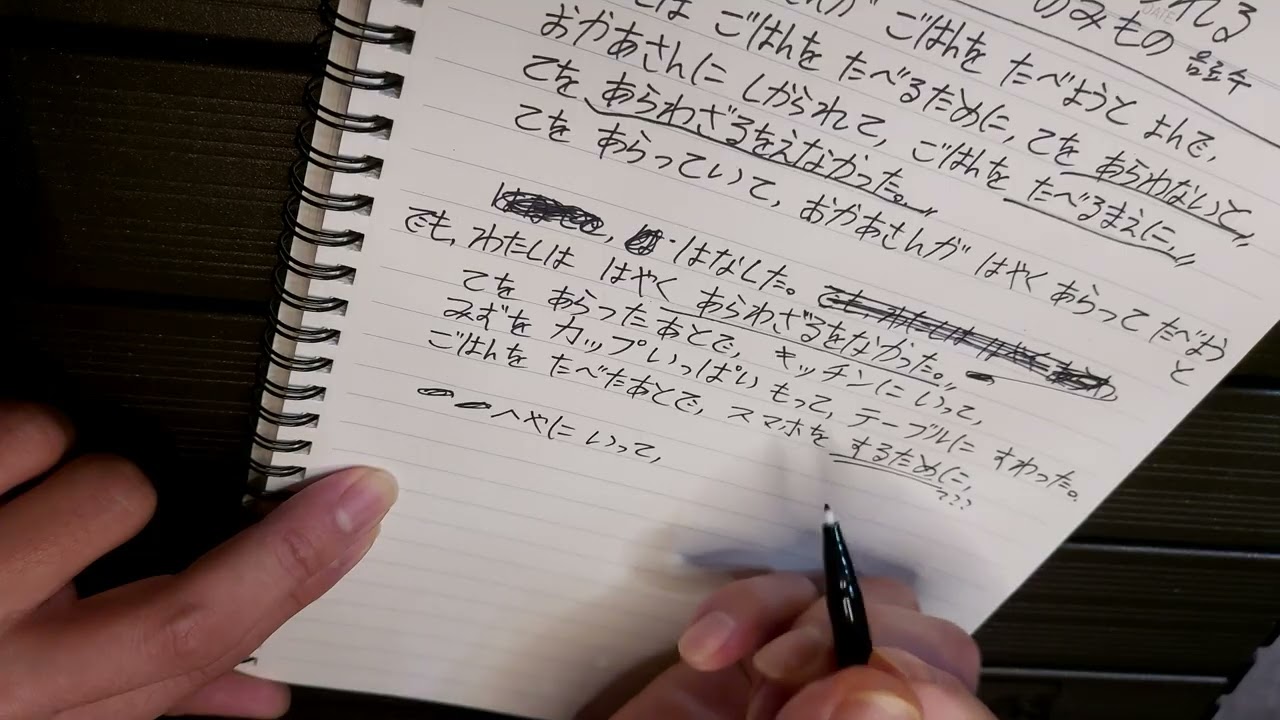 れる
のみもの
が ごはんを たべようと よんで,
は ごはんを たべるために, てを あらわないと
おかあさんに しかられて, ごはんを たべるまえに,
てを あらわざるをえなかった。
てを あらっていて, おかあさんが はやく あらって たべよう
と
はなした。
でも, わたしは はやく あらわざるをなかった。
てを あらったあとで, キッチンに いって,
みずを カップいっぱい もって, テーブルに すわった。
ごはんを たべたあとで, スマホを するために,
???
へやに いって,